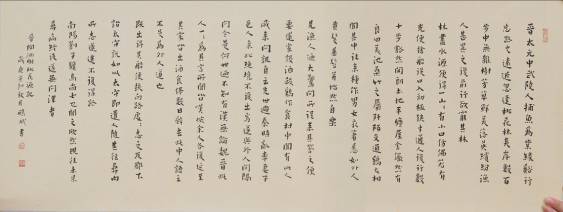 晉太元中武陵人捕魚為業緣谿行
忘路之遠近忽逢桃花林夾岸數百
步中無雜樹芳草鮮美落英繽紛漁
人甚異之復前行欲窮其林
林盡水源便得一山山有小口仿佛若有
光便捨船從口入初極狹才通人復行數
十步豁然開朗土地平曠屋舍儼然有
良田美池桑竹之屬阡陌交通雞犬相
聞其中往來種作男女衣著悉如外人
黃髮垂髫並怡然自樂
見漁人乃大驚問所從來具答之便
要還家設酒殺雞作食村中聞有此人
咸來問訊自云先世避秦時亂率妻子
邑人來此絕境不復出焉遂與外人間隔
問今是何世乃不知有漢無論魏晉此
人一一為具言所聞皆嘆惋余人各復延至
其家皆出酒食停數日辭去此中人語云
不足為外人道也
既出得其船便扶向路處處志之及郡下
詣太守說如此太守即遣人隨其往尋向
所志遂迷不復得路
南陽劉子驥高尚士也聞之欣然規往未果
尋病終後遂無問津者
晉陶淵明桃花源記